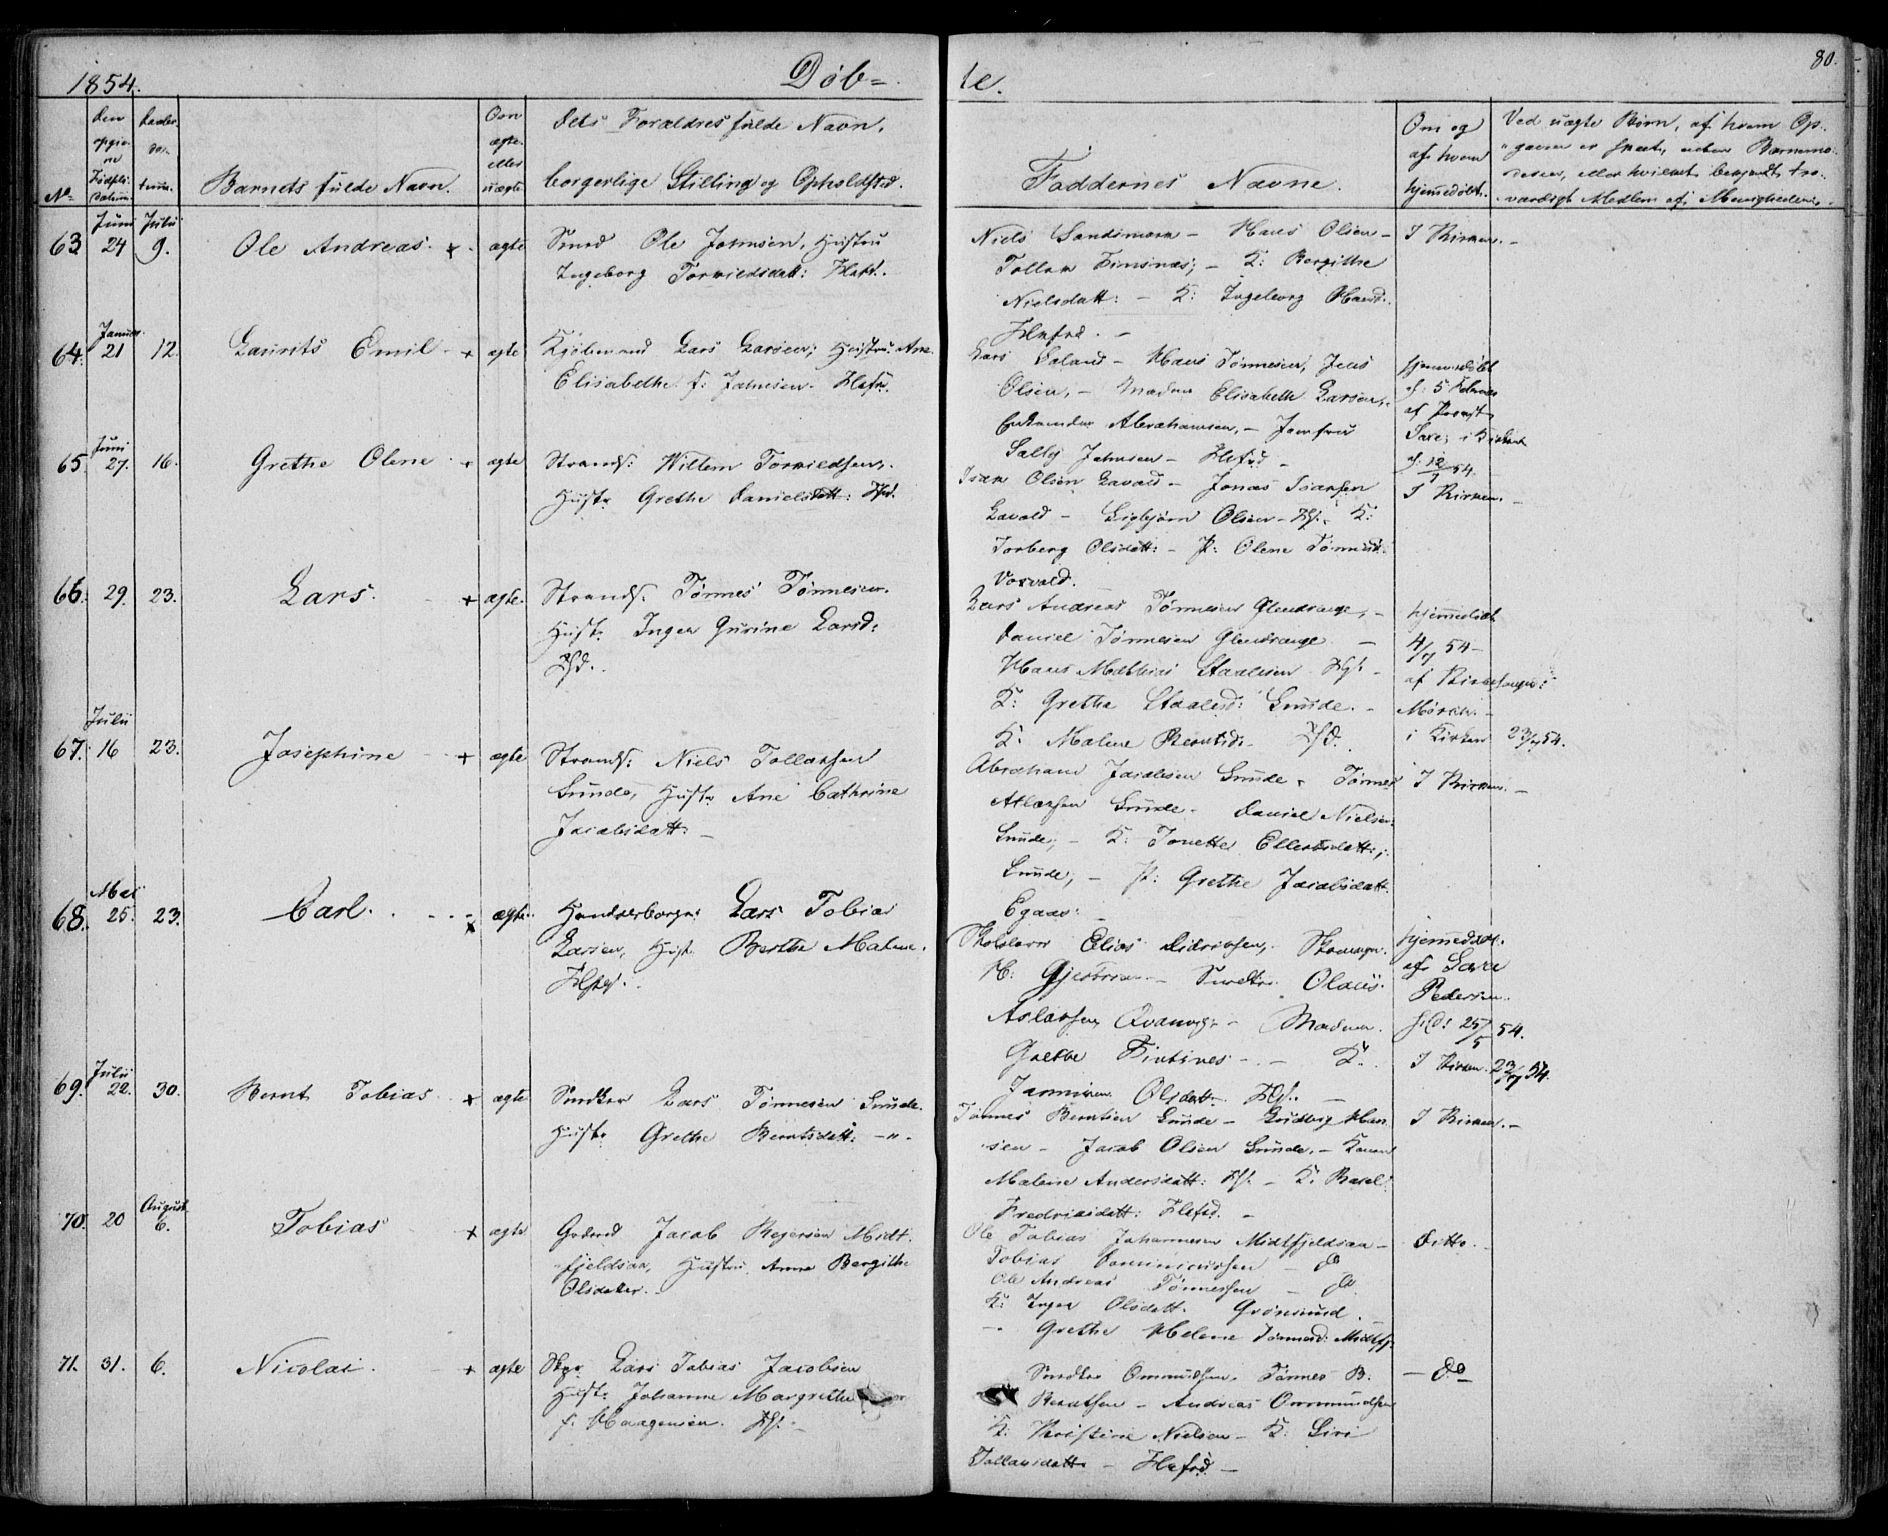 1854.
Døb=
te.
80.
No
den opgivne Fødselsdatum.
Daabsdatum.
Barnets fulde Navn.
Om ægte eller uægte
Dets Forældres fulde Navn,
borgerlige Stilling og Opholdsted.
Faddernes Navne.
Om og af hvem hjemmedøbt.
Ved uægte Børn, af hvem Op-
gaven er skeet, uden Barnemo-
deren, eller hvilket bekjendt tro-
værdigt Medlem af Menigheden.
63. Juni 24 Julii 9. Ole Andreas. + ægte Smed Ole Jahnsen, Hustru
Ingeborg Torkildsdatt: Flekf.
Niels Sandsmark - Hans Olsen -
Tollak Simsnæs; - K: Bergithe
Nielsdatt: - K: Ingeborg Hansd:
Flekfd. -
I Kirken. -
64. Januar 21 12. Laurits Emil. + ægte Kjøbmand Lars Larsen; Hustru Ane
Elisabethe f: Jahnsen. Flekf.
Lars Loland - Hans Tønnesen, Jens
Olsen, - Madm Elisabeth Larsen,
Abrahamsen, - Jomfru
Sally Jahnsen - Flekfd -
hjemmedøbt
d: 5 Februar
af Provst
Saxe; i Kirken
d: 12/7 54.
65. Juni 27. 16. Grethe Olene. + ægte Strands: Willem Torkildsen,
Hustr Grethe Danielsdatt:
Isak Olsen Lavold - Jonas Isaksen
Lavold - Sigbjørn Olsen - K:
Torborg Olsdatt: - P: Olene Tønnesd:
Loxvold.
I Kirken. -
66. 29. 23. Lars. + ægte. Strands. Tønnes Tønnesen.
Hust. Inger Gurine Larsd:
Lars Andreas Tønnesen Glendrange, -
Daniel Tønnesen Glendrange -
Hans Mathias Staalesen -
K: Grethe Staalesd: Sunde. -
K. Malene Berntsd: -
hjemmedøbt
4/7 54 -
af Kirkesanger
Mørch. -
i Kirken 23/7 54.
67. Julii 16 23. Josephine + ægte Strands: Niels Tollaksen
Sunde, Hustr Ane Cathrine
Jacobsdatt: -
Abraham Jacobsen Sunde - Tønnes
Atlaksen Sunde - Daniel Nielsen
Sunde; - K: Tonette Ellertsdatt:;
Sunde, - P: Grethe Jacobsdatt.
Egaas: -
I Kirken. -
68. Mai 25. 23. Carl. + ægte. Haandverborger Lars Tobias
Larsen, Hust. Berthe Malene.
Skolelærer Elias Didriksen,
H: - Snedkr. Olaus
Aslaksen - Madam.
Grethe - K.
Olsdatt.
hjemmedøbt.
af Saxe
Pedersen.
25/5 54.
I Kirken. 23/7 54.
69. Julii 22. 30. Bernt Tobias. + ægte Snedker Lars Tønnesen Sunde.
Hustr Grethe Berntsdatt: - " -
Tønnes Berntsen Sunde - Ludvig Han
sen - Jacob Olsen Sunde. - Konen
Malene Andersdatt: - K: Rakel
Fredriksdatt: Flekfd. -
I Kirken. -
70. 20 August 6. Tobias + ægte Grdmd Jacob Rejersen Midt-
fjeldsaa, Hustru Anne Bergithe
Olsdatter.
Ole Tobias Johannesen Midtfjeldsaa -
Tobias Dominicussen - do
Ole Andreas Tønnessen - do
K: Inger Olsdatt. Grønsund.
- Grethe Helene Tønnesd: Midtfj.
Ditto. -
71. 31. 6. Nicolai. + ægte Skpr Lars Tobias Jacobsen
Hustr Johanne Margrethe
f: Haagensen.
Snedker Ommundsen, Tønnes B.
Berntsen - Andreas Ommundsen
K: Kristine Nielsen - K: Siri
Tollaksdatt - Flekfd. -
- do -